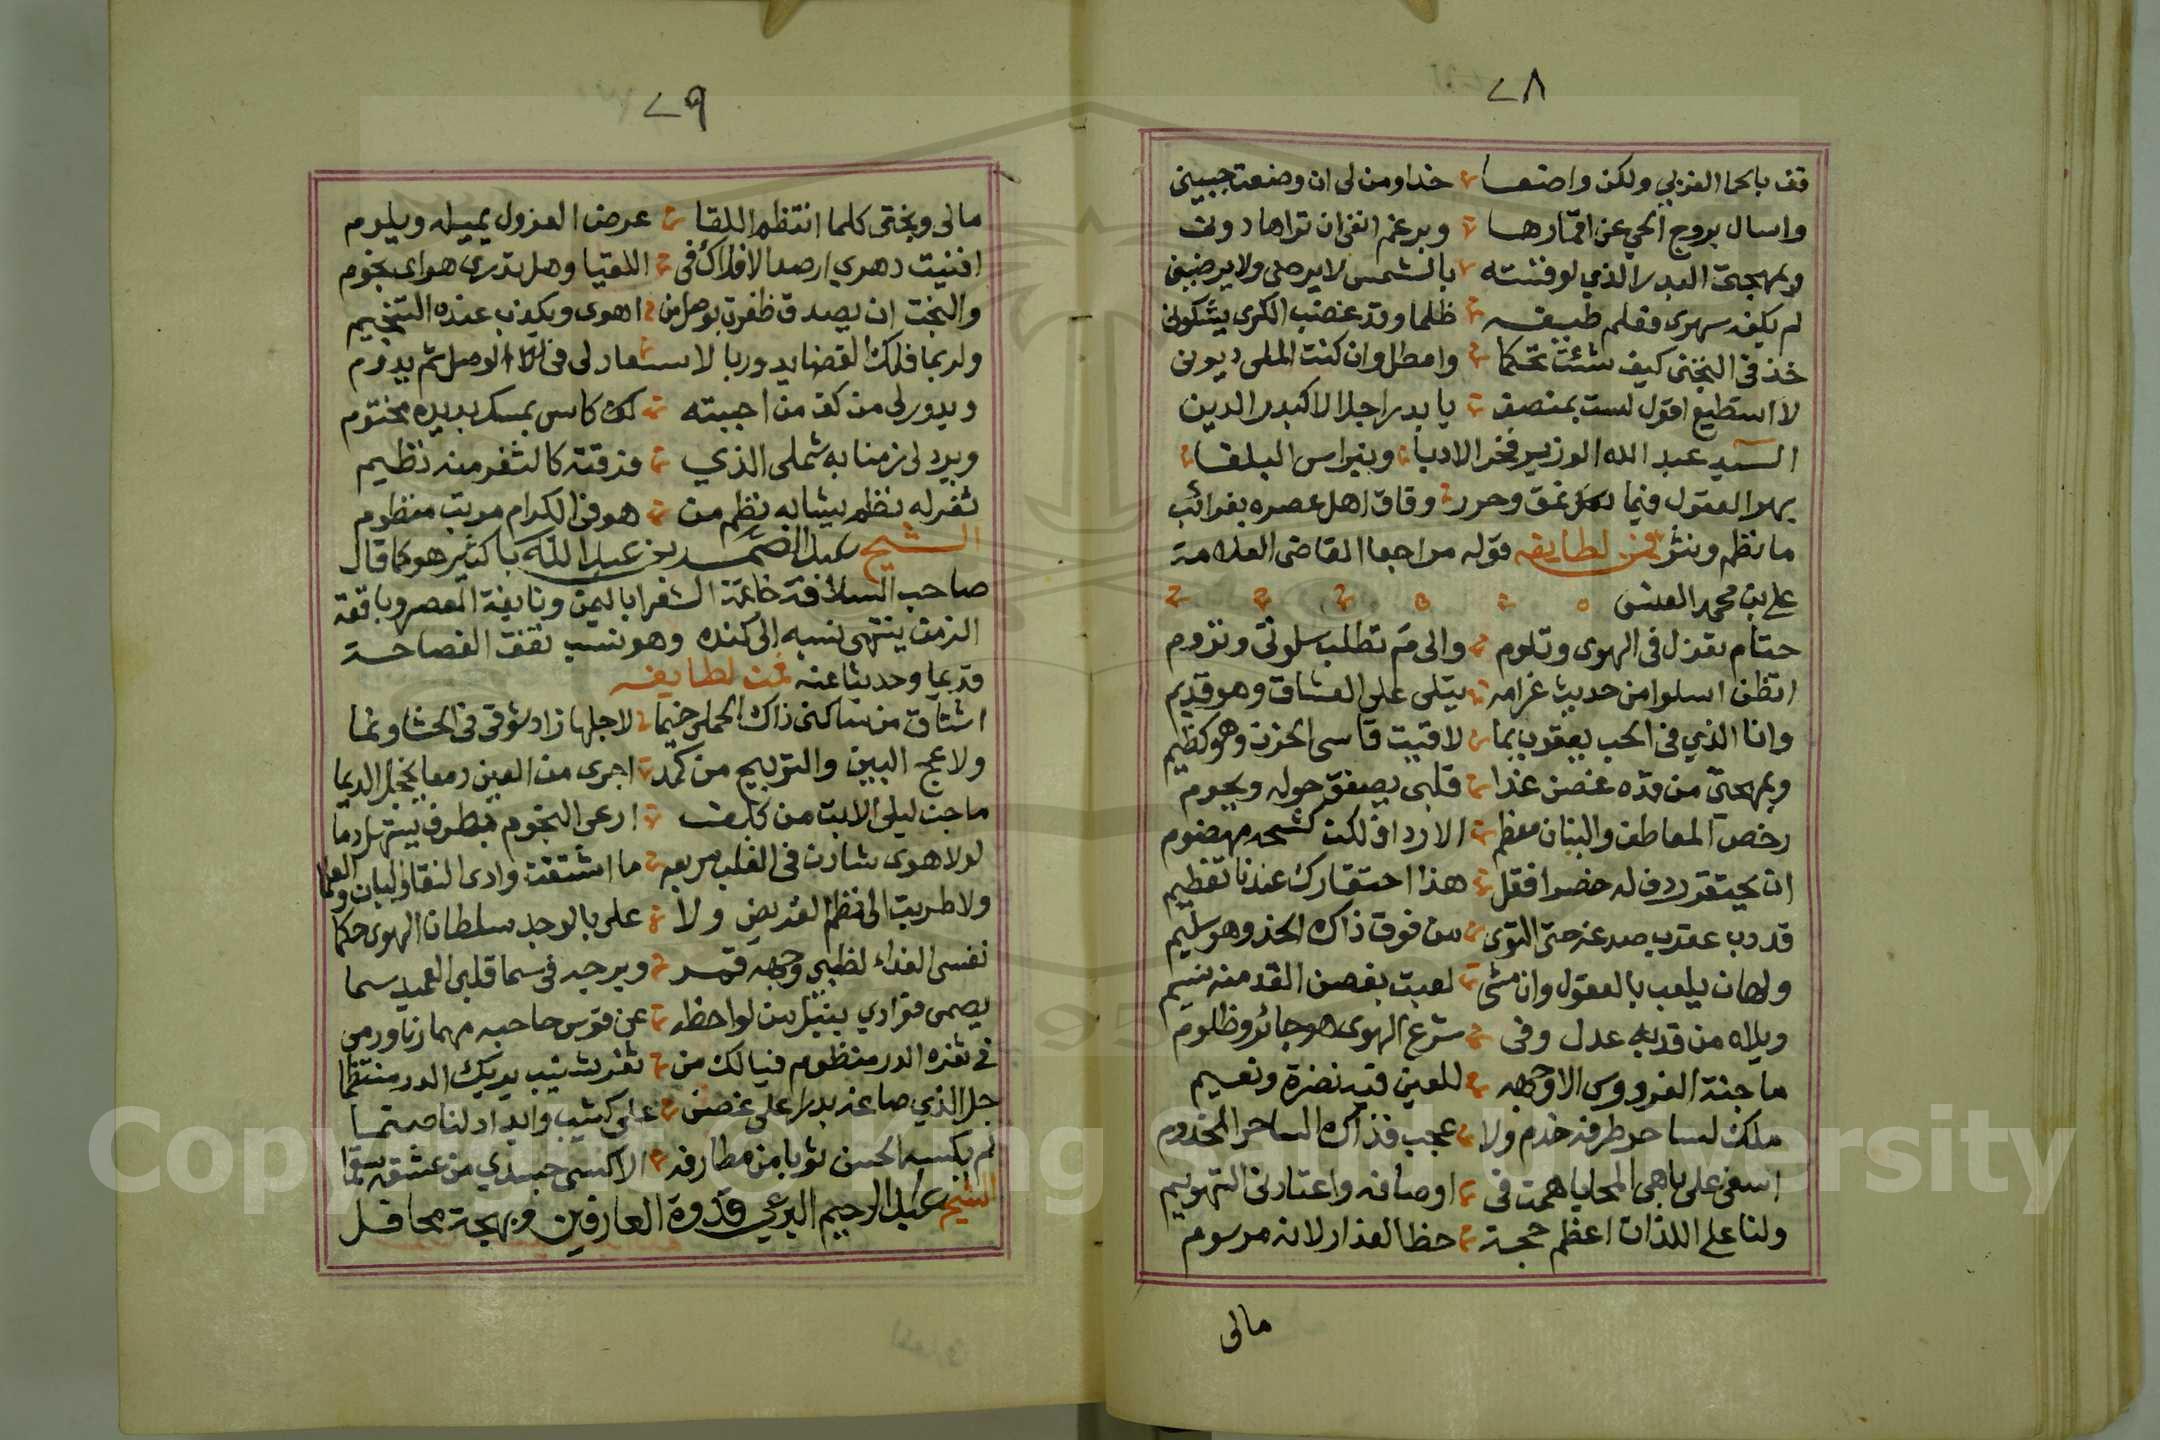 ٢٨
قف بالحما الغربي ولكن واضعا خدا ومن لى ان وضعت جبينى
واسال بروج الحي عن اقمارها وبرغم انفى ان تراها دونى
وبمهجتى البدر الذي لو قسته بالشمس لا يرضى ولا يرضينى
لم يكفه سهرى فعلم طيفه ظلما وقد غضب الكرى يشكونى
خذ فى التجنى كيف شئت تحكما وامطل وان كنت الملى ديونى
لا استطيع اقول لست بمنصف يا بدر اجلالا لبدر الدين
السيد عبد الله الوزير فخر الادبا ونبراس البلغا
بهر العقول فيما نمق وحرر وفاق اهل عصره بغرائب
ما نظم ونثر فمن لطايفه قوله مراجعا القاضى العلامة
على بن محمد العنسى
حتام تعذل فى الهوى وتلوم والى م تطلب سلوتى وتروم
اتظن اسلوا من حديث غرامه يتلى على العشاق وهو قديم
وانا الذي فى الحب يعقوب بما لاقيت قاسى الحزن وهو كظيم
وبمهجتى من قده غصن غدا قلبى يصفق حوله ويحوم
رخص المعاطف والبنان معظم الارداف لكن كشحه مهضوم
ان يحتقر ردف له خصرا فقل هذا احتقارك عندنا تعظيم
قد دب عقرب صدغه حتى التوى من فوق ذاك الخد وهو سليم
ولهان يلعب بالعقول وان مشى لعبت بغصن القد منه نسيم
ويلاه من قد به عدل وفى شرع الهوى هو جائر وظلوم
ما جنة الفردوس الا وجهه للعين فيه نضرة ونعيم
ملك لساحر طرفه خدم ولا عجب فذاك الساحر المخدوم
اسفى على باهى المحايا همت فى اوصافه واعتادنى التهويم
ولنا على اللذات اعظم حجة خط العذار لانه مرسوم
مالى
٢٩
مالى وبختى كلما انتظم اللقا عرض العزول يميله ويلوم
افنيت دهري ارصد الافلاك فى اللقيا وهل تدرى هواى نجوم
والبخت ان يصدق ظفرت بوصل من اهوى ويكذب عنده التنجيم
ولربما فلك القضا يدور بالاسعاد لى فى الوصل ثم يدوم
ويدور لى من كف من احببته لك كاس بمسك يديه مختوم
ويرد لى زمنا به شملى الذي مزقته كالثغر منه نظيم
ثغر له نظم يشابه نظم من هو فى الكرام مرتب منظوم
الشيخ عبد الصمد بن عبد الله باكثير هو كما قال
صاحب السلافة خاتمة الشعرا باليمن ونابغة العصر وباقعة
الزمن ينتهى نسبه الى كنده وهو نسب تقف الفصاحة
قديما وحديثا عنه فمن لطايفه
اشتاق من ساكنى ذاك الحملى خيما لاجلها زاد شوقى فى الحشا ونما
ولاعج البين والتبريح من كمد اجرى من العين دمعا يخجل الديما
ما جن ليلى الا بت من كلف ارعى النجوم بطرف يستهل دما
لولا هوى شادن فى القلب مربعه ما اشتقت وادى النقا والبان والعلما
ولا طربت الى نظم القريض ولا على بالوجد سلطان الهوى حكما
نفسى الفداء لظبي وجهه قمر وبرجه فى سما قلبى العميد سما
يصمى فوادي بنبل من لواحظه عن قوس حاجبه مهما رنا ورمى
فى ثغره الدر منظوم فيا لك من ثغر شنيب يريك الدر منتظما
جل الذي صاغه بدرا على غصن على كثيب وابداه لنا صنما
لم يكسه الحسن ثوبا من مطارفه الا كسى جسدي من عشقه سقما
الشيخ عبد الرحيم البرعي قدوة العارفين وبهجة محافل